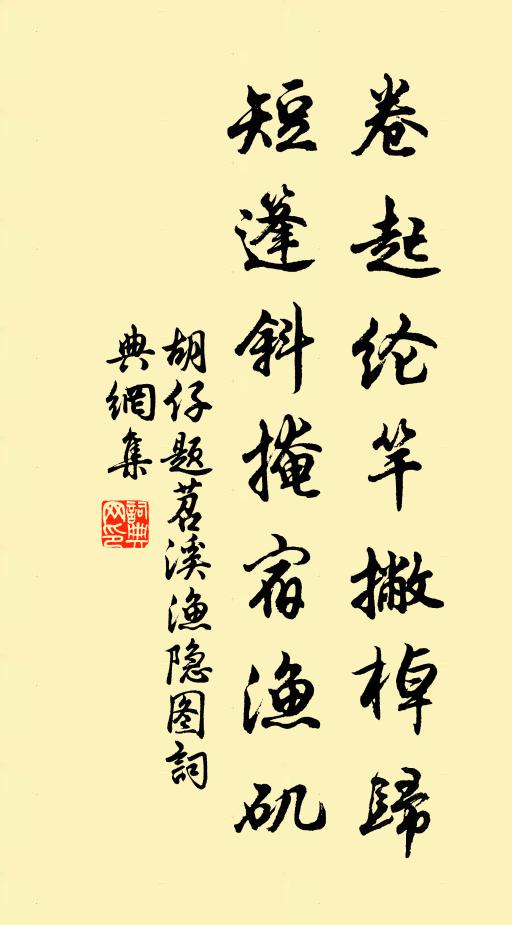 卷起纶竿撇棹歸
短篷斜掩宿漁矶
胡仔题苕溪漁隐图詞
典網集
詞典网印